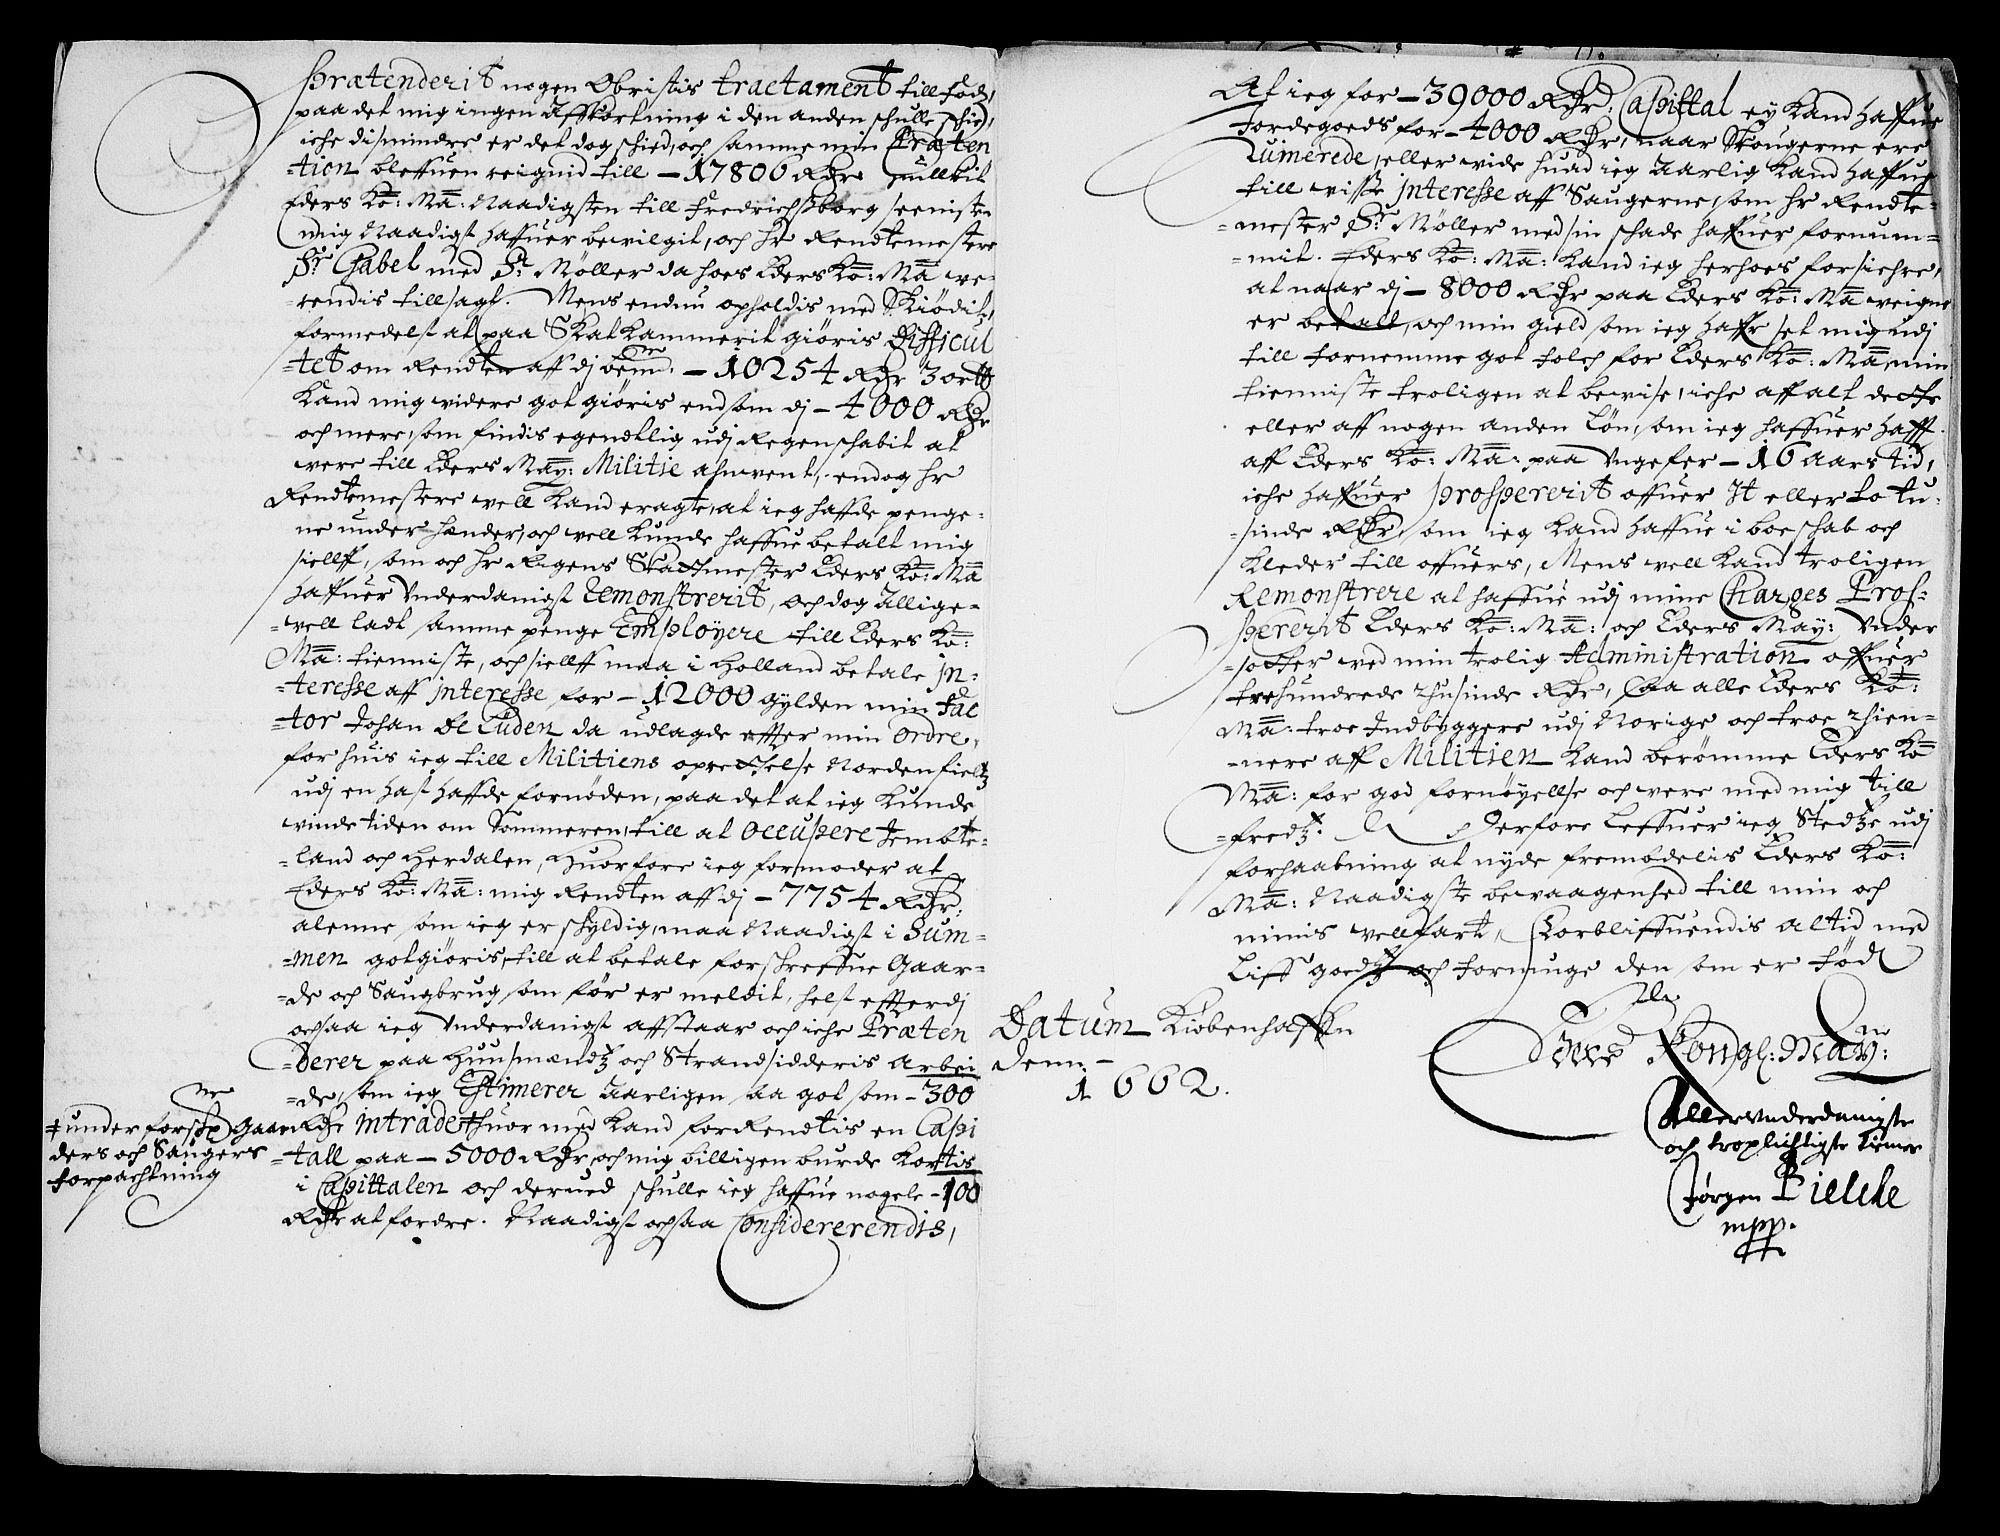 Prætenderit nogen Obristis tractament till fods,
paa det mig ingen Affkortning i den anden schulle schied,
iche dismindre er det dog schied, och samme min Præten
=tion bleffuen reignid till – 17806 Rdr huilkit
Eders Ko: Ma: Naadigsten till Fredrichsborg seenisten
mig Naadigst haffuer bevilgit, och hr Rendtemestere
Sr Gabel med Sr Møller da hoes Eders Ko: Ma ve=
=rendis tillsagt. Mens endnu opholdis med Skiødit,
formedelst at paa Skatkammerit giøris Difficul
=tet om Rendten aff dj bemte. – 10254 Rdr 3 ortt
Kand mig videre got giøris end som dj – 4000 Rdr
och mere, som findis egendtlig udj Regenschabit at
vere till Eders May: Militie anvent, endog hr
Rendtemestere vell kand eragte, at ieg haffde penge=
ne under hænder, och vell kunde haffue betalt mig
siellff, som och hr Rigens Skattmester Eders Ko: Ma
haffuer Underdanigst Remonstrerit, och dog Allige=
=vell ladt samme penge Employere till Eders Ko:
Ma: tienniste, och siellff maa i Holland betale in=
=teresse aff interesse for – 12000 gylden min Fac
=tor Johan de Luden da udlagde effter min ordre,
for huis ieg till Militiens oprettelse Nordenfieltz
udj en hast haffde fornøden, paa det at ieg kunde
vinde tiden om Sommeren, till at Occupere Jembte=
=land och Herdalen, Huorfore ieg formoder at
Eders Ko: Ma: mig Rendten aff dj – 7754 Rdr,
alenne som ieg er skyldig, maa Naadigst i Sum=
=men gotgiøris, till at betale forschreffne Gaar=
=de och Saugbrug som før er meldit, helst effterdj
ochsaa ieg Underdanigst affstaar och iche Præten
=derer paa Huusmændz och Strandsidderis Arbei
=de, som ieg Estimerer Aarligen saa got som – 300
Rdr intrade ‡ huor med kand forRendtis en Capi
=tall paa – 5000 Rdr, och mig billigen burde kortis
i Capittalen och derued schulle ieg haffue nogele – 100
Rdr at fordre. Naadigst ochsaa Considererendis,
‡ under forschrne Gaar
ders och Saugers
forpachtning
At ieg for – 39000 Rdr. Capittal ey kand haffue
Jordegoeds for – 4000 Rdr, naar Skougerne ere
Ruinerede, eller vide huad ieg Aarlig kand haffue
till visse interesse aff Saugerne, som hr Rendte=
=mester Sr Møller med sin schade haffuer fornum=
=mit. Eders Ko: Ma: kand ieg herhoes forsichre,
at naar dj – 8000 Rdr paa Eders Ko: Ma veigne
er betalt, och min gield som ieg haffr set mig udj
till fornemme got folch for Eders Ko: Ma, min
tienniste troligen at bevise, iche aff alt dette
eller aff nogen anden Løn, som ieg haffuer hafft
aff Eders Ko: Ma: paa Ungefer – 16 Aars tid,
iche haffuer prospererit offuer It eller to tu=
=sinde Rdr, som ieg kand haffue i boeschab och
kleder till offuers, Mens vell kand troligen
Remonstrere at haffue udj mine Charges Pros=
pererit Eders Ko: Ma: och Eders May: Under
=sotter ved min trolig Administration offuer
trehundrede thusinde Rdr, Saa alle Eders Ko:
Ma: troe Indbyggere udj Norige och troe thien=
=nere aff Militien kand berømme Eders Ko
Ma: for god fornøyellse och vere med mig till
=fredz. Derfore Leffuer ieg Stedze udj
forhaabning at nyde frembdelis Eders Ko:
Ma: Naadigste bevaagenhed till min och
minis vellfart, Forbliffuendis altid med
Liff goedz och formuge den som er fød
Datum Kiøbenhaffn
denn –
1662.
Eders Kongl: May:
Allerunderdanigste
och troplichtigste tiener
Jørgen Bielcke
mpp.